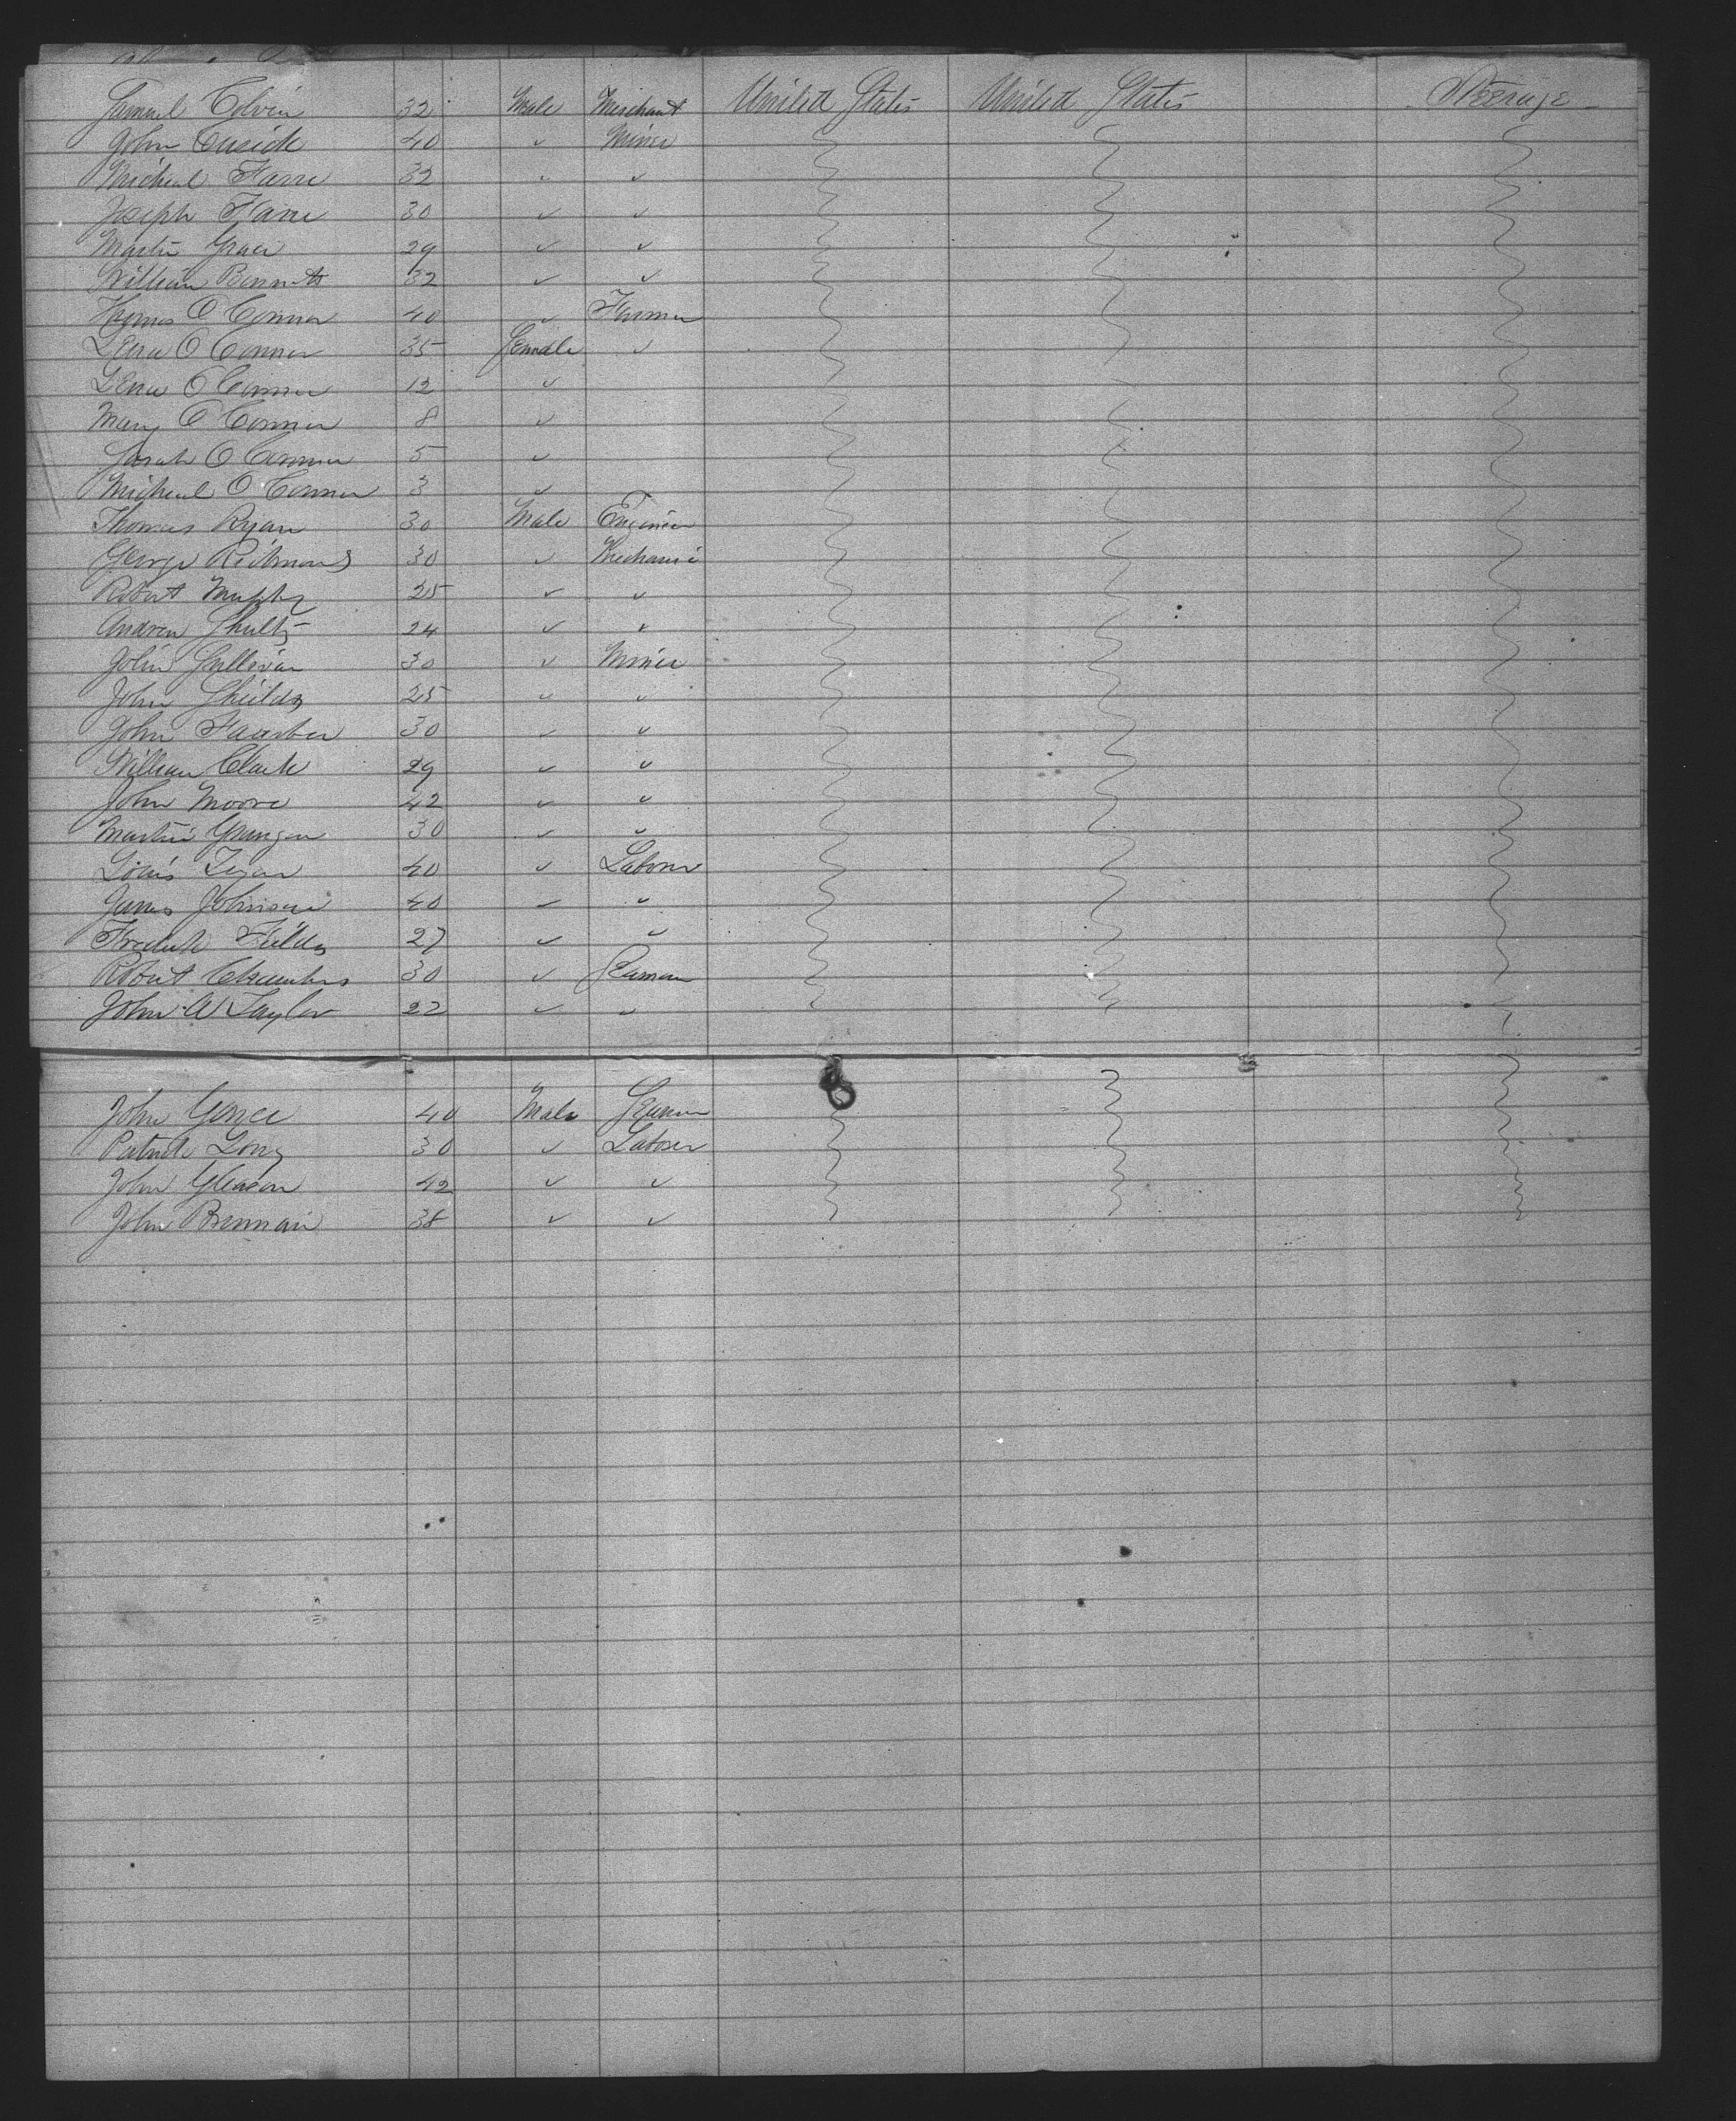 Samuel Colvin 32 Male Merchant United States United States Steerage
John Cusick 40 ✓ Miner
Micheal Farre 32 ✓ ✓
Joseph Farre 30 ✓ ✓
Martin Grace 29 ✓ ✓
William Bennetts 32 ✓ ✓
Thomas O Connor 40 ✓ Farmer
Lena O Connor 35 Female ✓
Lena O Connor 12 ✓
Mary O Connor 8 ✓
Sarah O Connor 5 ✓
Micheal O Connor 3 ✓
Thomas Ryan 30 Male Engineer
George Richmond 30 ✓ Mechanic
Robert Murphy 25 ✓ ✓
Andrew Shultz 24 ✓ ✓
John Sullivan 30 ✓ Miner
John Shields 25 ✓ ✓
John 30 ✓ ✓
William Clark 29 ✓ ✓
John Moore 42 ✓ ✓
Martin 30 ✓ ✓
Louis 40 ✓ Laborer
James Johnson 40 ✓ ✓
Fredrick Fields 27 ✓ ✓
Robert Chambers 30 ✓ Seaman
John W Taylor 22 ✓ ✓
John 40 Male Seaman
Patrick Long 30 ✓ Laborer
John Gleason 42 ✓ ✓
John Brennan 38 ✓ ✓